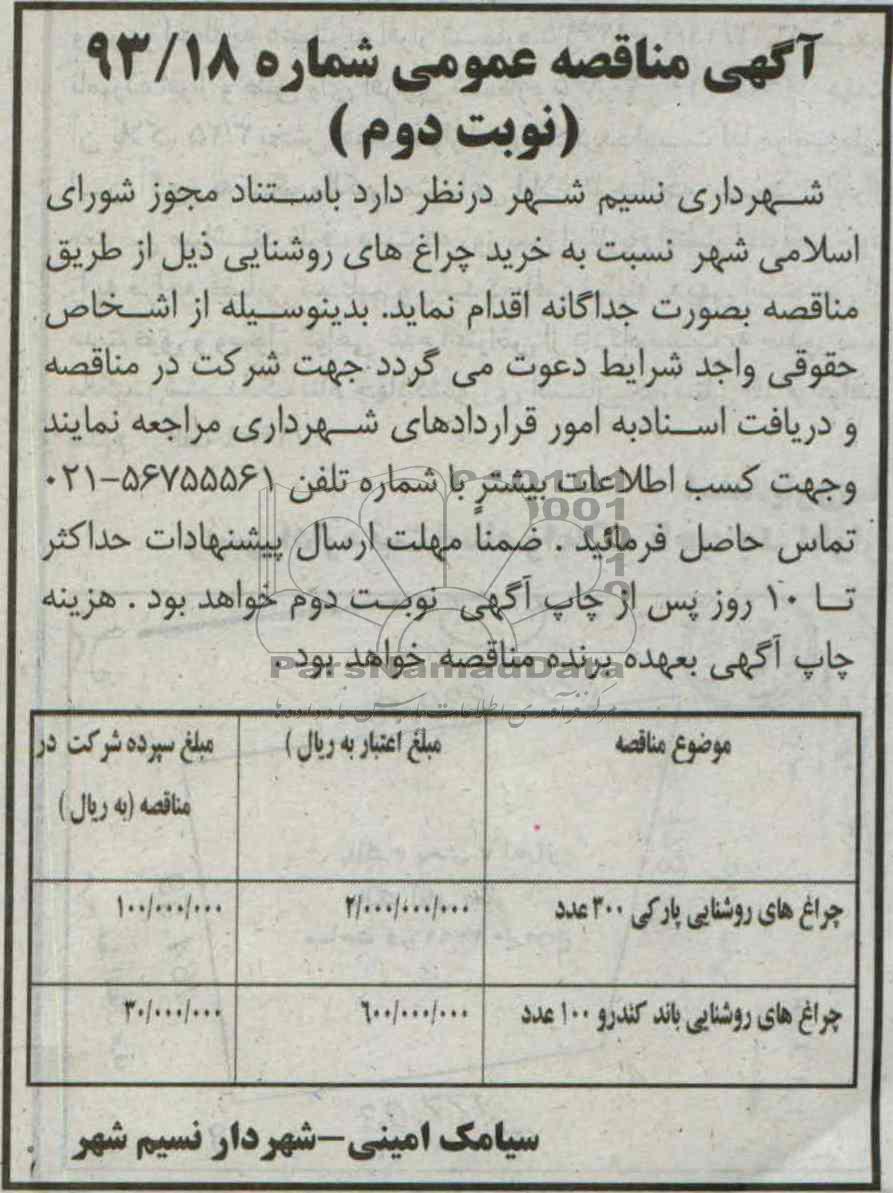 آگهی مناقصه عمومی شماره ۹۳/۱۸
(نوبت دوم )
شهرداری نسیم شهر درنظر دارد باستناد مجوز شورای
اسلامی شهر نسبت به خرید چراغ های روشنایی ذیل از طریق
مناقصه بصورت جداگانه اقدام نماید. بدینوسیله از اشخاص
حقوقی واجد شرایط دعوت می گردد جهت شرکت در مناقصه
و دریافت اسنادبه امور قراردادهای شهرداری مراجعه نمایند
وجهت کسب اطلاعات بیشتر با شماره تلفن ۵۶۷۵۵۵۶۱-۰۲۱
تماس حاصل فرمائید . ضمناً مهلت ارسال پیشنهادات حداکثر
تا ۱۰ روز پس از چاپ آگهی نوبت دوم خواهد بود . هزینه
چاپ آگهی بعهده برنده مناقصه خواهد بود .
ParsNamadData
موضوع مناقصه مبلغ اعتبار به ریال ) مبلغ سپرده شرکت در
مناقصه (به ریال )
چراغ های روشنایی پارکی ۳۰۰ عدد ۲/۰۰۰/۰۰۰/۰۰۰ ۱۰۰/۰۰۰/۰۰۰
چراغ های روشنایی باند کندرو ۱۰۰ عدد ۶۰۰/۰۰۰/۰۰۰ ۳۰/۰۰۰/۰۰۰
سیامک امینی-شهردار نسیم شهر